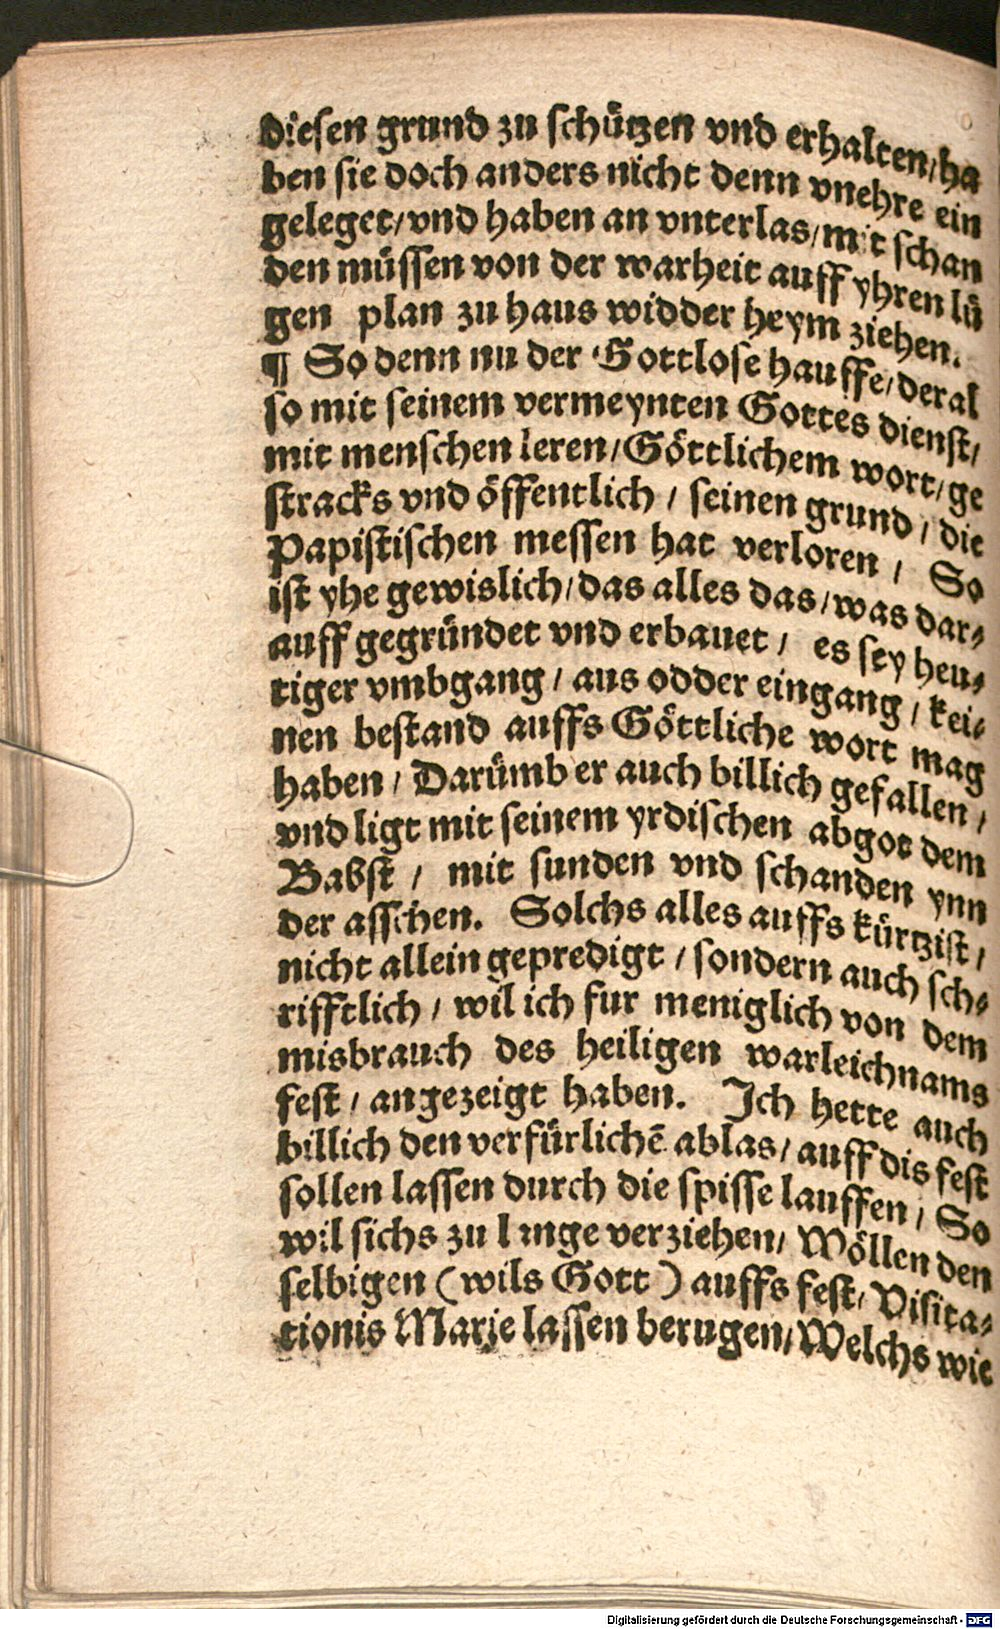 diesen grund zu schützen vnd erhalten/ha
ben sie doch anders nicht denn vnehre ein
geleget/vnd haben an vnterlas/mit schan
den müssen von der warheit auff yhren lü
gen plan zu haus widder heym ziehen.
¶ So denn nu der Gottlose hauffe/der al
so mit seinem vermeynten Gottes dienst/
mit menschen leren/Göttlichem wort/ge
stracks vnd öffentlich/seinen grund/die
Papistischen messen hat verloren/ So
ist yhe gewislich/das alles das/was dar-
auff gegründet vnd erbauet/ es sey heu-
tiger vmbgang/aus odder eingang/kei-
nen bestand auffs Göttliche wort mag
haben/Darümb er auch billich gefallen/
vnd ligt mit seinem yrdischen abgot dem
Babst/ mit sunden vnd schanden ynn
der asschen. Solchs alles auffs kürtzist/
nicht allein gepredigt/sondern auch sch-
rifftlich/wil ich fur meniglich von dem
misbrauch des heiligen warleichnams
fest/angezeigt haben. Ich hette auch
billich den verfürlichē ablas/auff dis fest
sollen lassen durch die spisse lauffen/ So
wil sichs zu lange verziehen/Wöllen den
selbigen (wils Gott) auffs fest/Visita-
tionis Marie lassen berugen/Welchs wie
Digitalisierung gefördert durch die Deutsche Forschungsgemeinschaft - DFG